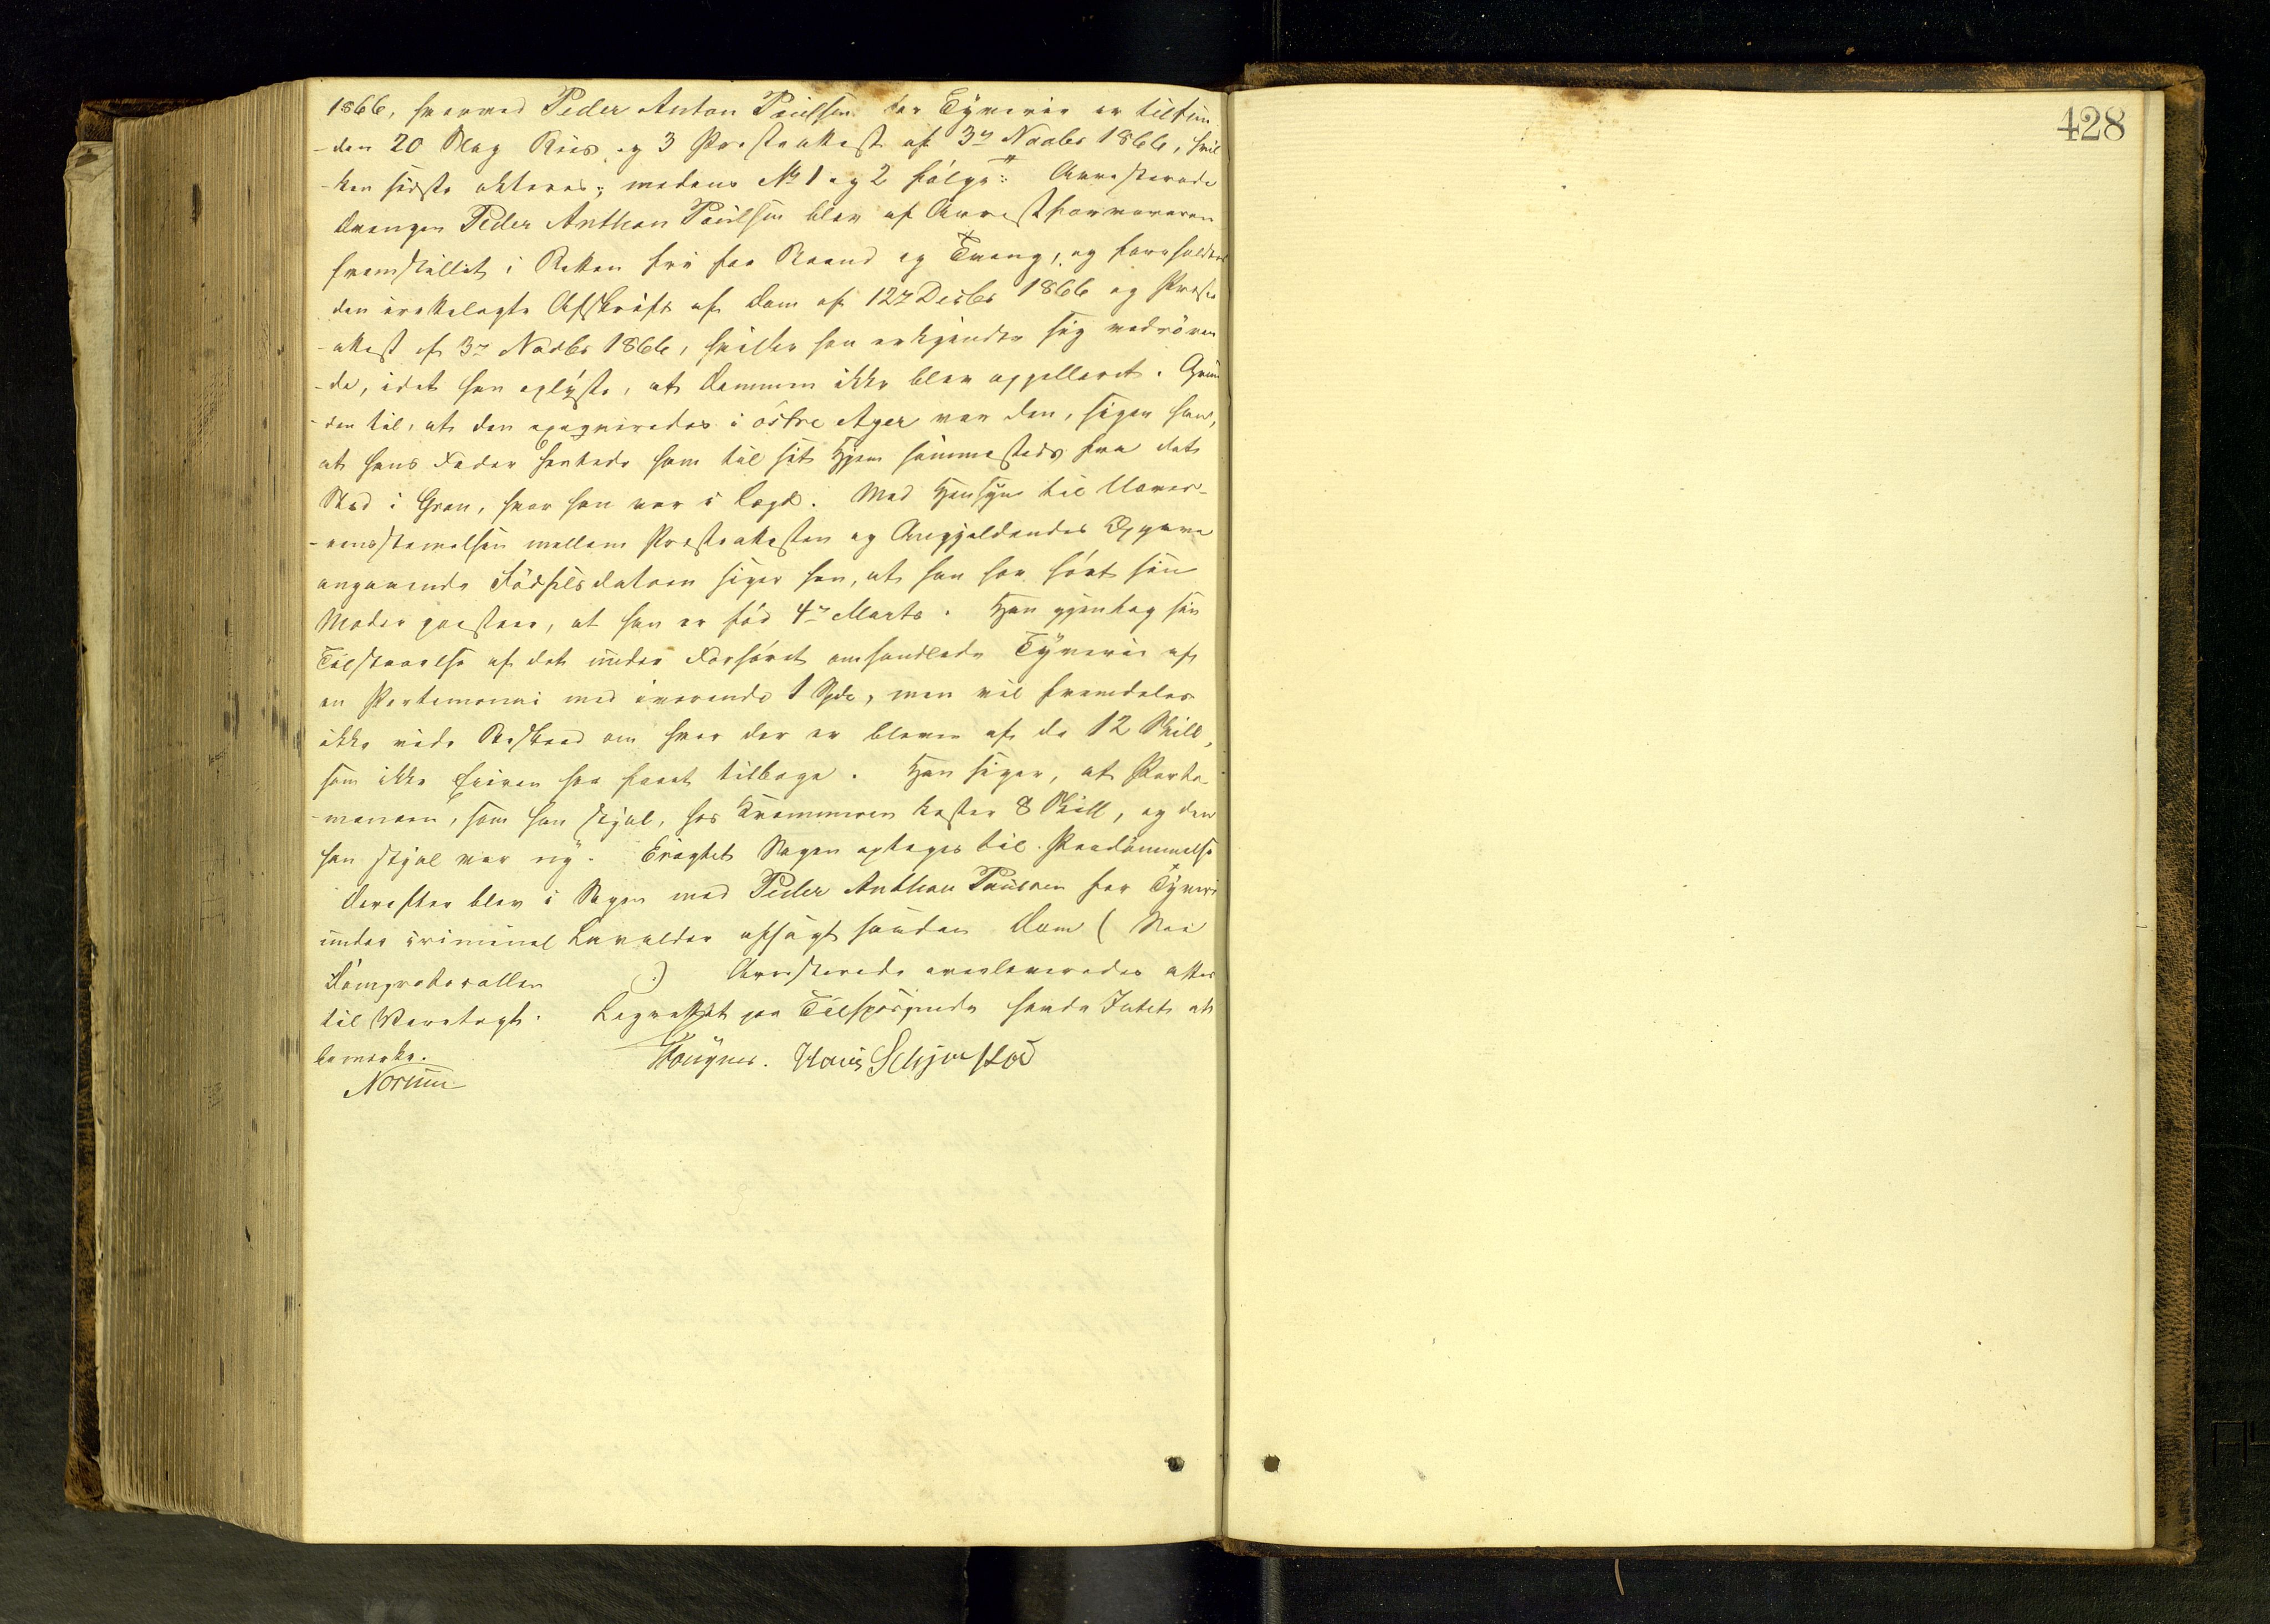 1866, hvorved Peder Anton Paulsen for Tyverie er tilfun-
-den 20 Slag Riis, og 3 Presteattest af 3die Novbr 1866, hvil
-ken sidste akteres; medens No 1 og 2 følge: Arresterede
Drengen Peder Anthon Paulsen blev af Arrestforvareren
fremstillet i Retten fri for Baand og Tvang, og foreholdtes
den irettelagte Afskrift af Dom af 12te Decbr 1866 og Preste
-attest af 3die Novbr 1866, hvilke han erkjendte sig vedrören
-de, idet han oplyste, at Dommen ikke blev appelleret. Grun
-den til, at den exeqveredes i östre Ager var den, siger han,
at hans Fader hentede ham til sit Hjem sammesteds fra det
Sted i Gran, hvor han var i Lægd. Med Hensyn til Uover-
-eensstemelsen mellem Presteattesten og Angjeldendes Opgave
angaaende Födselsdatoen siger han, at han har hört sin
Moder paastaa, at han er föd 4de Marts. Han gjentog sin
Tilstaaelse af det under Forhöret omhandlede Tyverie af
en Portemonai med iværende 1 Spd, men vil fremdeles
ikke vide Besked om hvor der er bleven af de 12 Skill,
som ikke Eieren har faaet tilbage. Han siger, at Porte-
-monaien, som han stjal, hos Kræmmeren koster 8 Skill, og den
han stjal var ny. Eragtet Sagen optages til Paadömmelse
Derefter blev i Sagen mod Peder Anthon Paulsen for Tyveri
under criminel Lavalder afsagt saadan Dom ( See
Domprotocollen .) Arresterede overleveredes atter
til Varetægt. Lagrettet paa Tilspörgende havde Intet at
bemerke.
Hougner. Hans Schjerstad
Norum
428